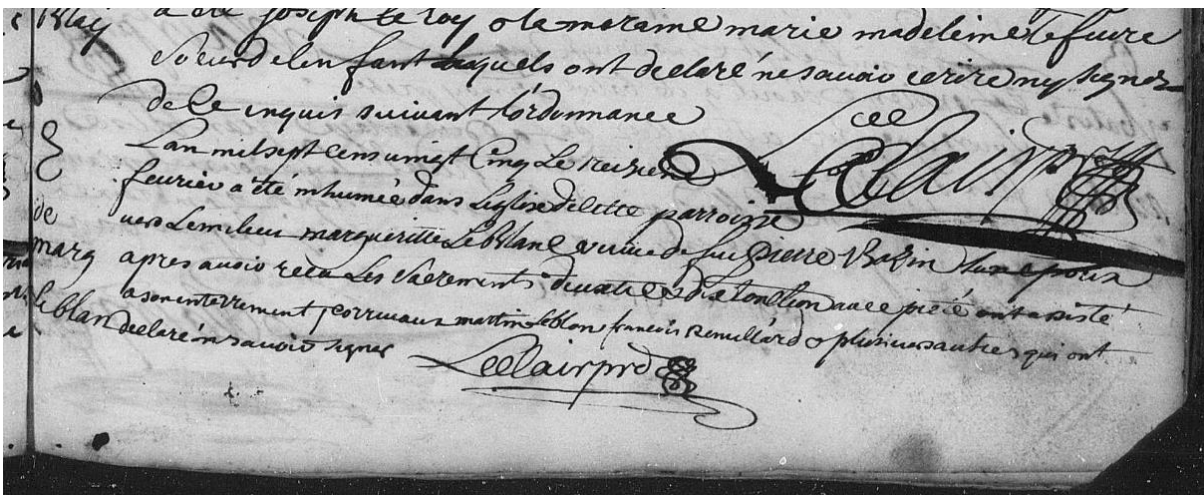 a été joseph Le roy & la maraine marie madeleine Lefevre
Soeur de lenfant Lesquels ont declaré ne savoir ecrire ny signer
de ce enquis suivant L'ordonnance
Leclair ptre
L'an mil sept cens vingt Cinq Le treizieme
feurier a été inhumée dans L'eglise de cette parroisse
vers Le milieu margueritte Le blanc veuve de feu pierre Bazin
apres avoir recu Les Sacrements avec pieté ont assisté
a son enterrement martin Leblon francois Remillard & plusieurs autres qui ont
declaré ne savoir signer
Leclair ptre
de
marg
leblan